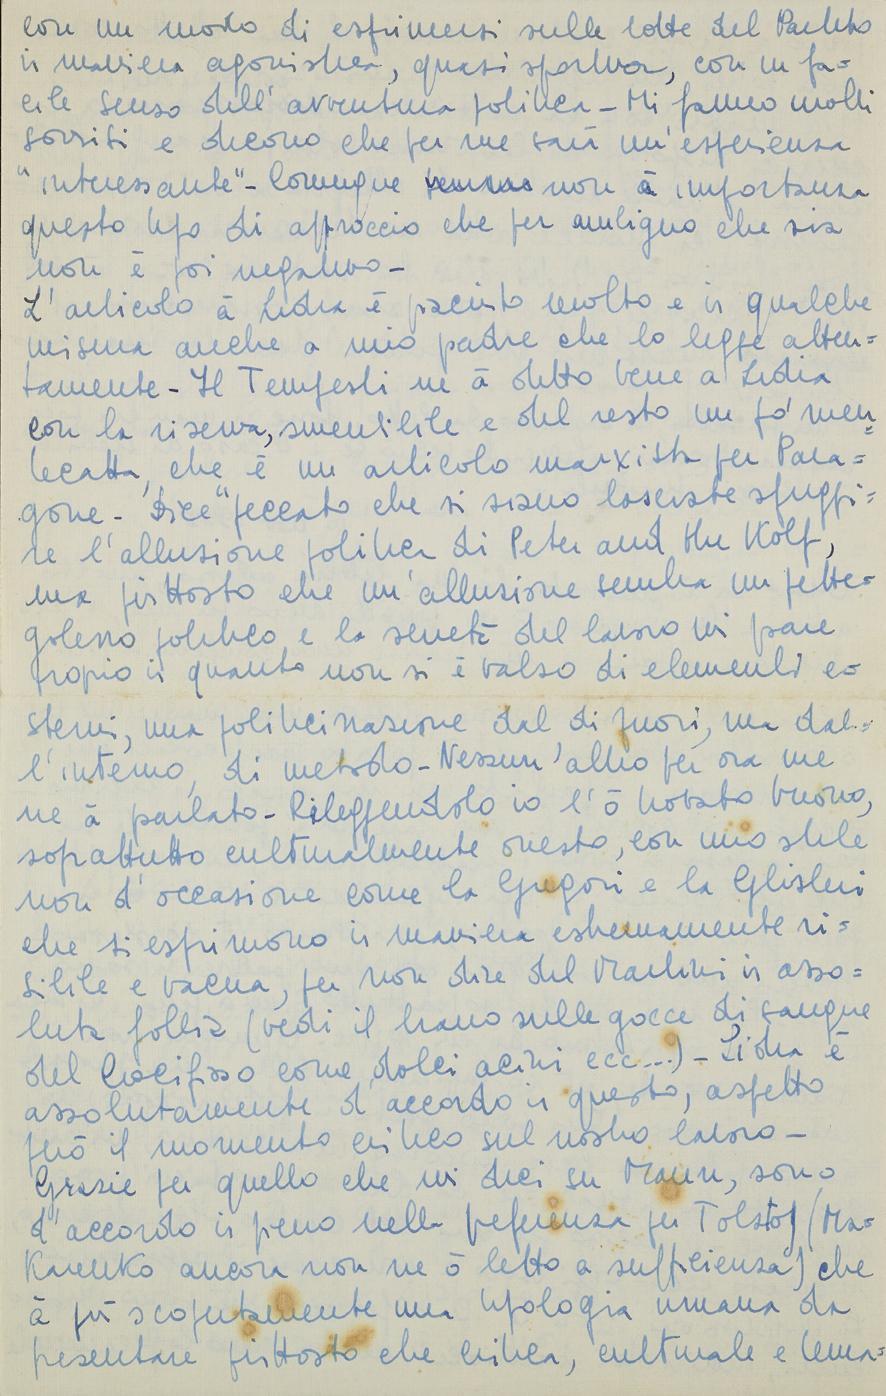 con un modo di esprimersi sulle lotte del Partito
in maniera agonistica, quasi sportiva, con un fa=
cile senso dell'avventura politica - Mi fanno molti
sorrisi e dicono che per me sarà un'esperienza
"interessante" - Comunque non à importanza
questo tipo di approccio che per maligno che sia
non è poi negativo -
L'articolo à Lidia è piaciuto molto e in qualche
misura anche a mio padre che lo legge atten=
tamente - Il Tempesti ne à detto bene a Lidia
con la riserva, smentibile e del resto un pò men=
tecatta, che è un articolo marxista per Para=
gone - Dice "peccato che si siano lasciate sfuggi=
re l'allusione politica di Peter and the Wolf,
ma piuttosto che un'allusione sembra un pette=
golezzo politico e la serietà del lavoro mi pare
proprio in quanto non si è valso di elementi e
sterni, una politicizzazione dal di fuori, ma dal=
l'interno, di metodo - Nessun'altro per ora me
ne à parlato - Rileggendolo io l'ò trovato buono,
soprattutto culturalmente onesto, con uno stile
non d'occasione come la Gregori e la Ghislini
che si esprimono in maniera estremamente ri=
sibile e vacua, per non dire del Martini in asso=
luta follia (vedi il brano sulle gocce di sangue
del Crocifisso come dolci acini ecc...) - Lidia è
assolutamente d'accordo in questo, aspetto
però il momento critico sul nostro lavoro -
Grazie per quello che mi dici su Mann, sono
d'accordo in pieno nella preferenza per Tolstoj (Ma=
Karenko ancora non ne ò letto a sufficienza) che
à più scopertamente una tipologia umana da
presentare piuttosto che critica, culturale e tema=